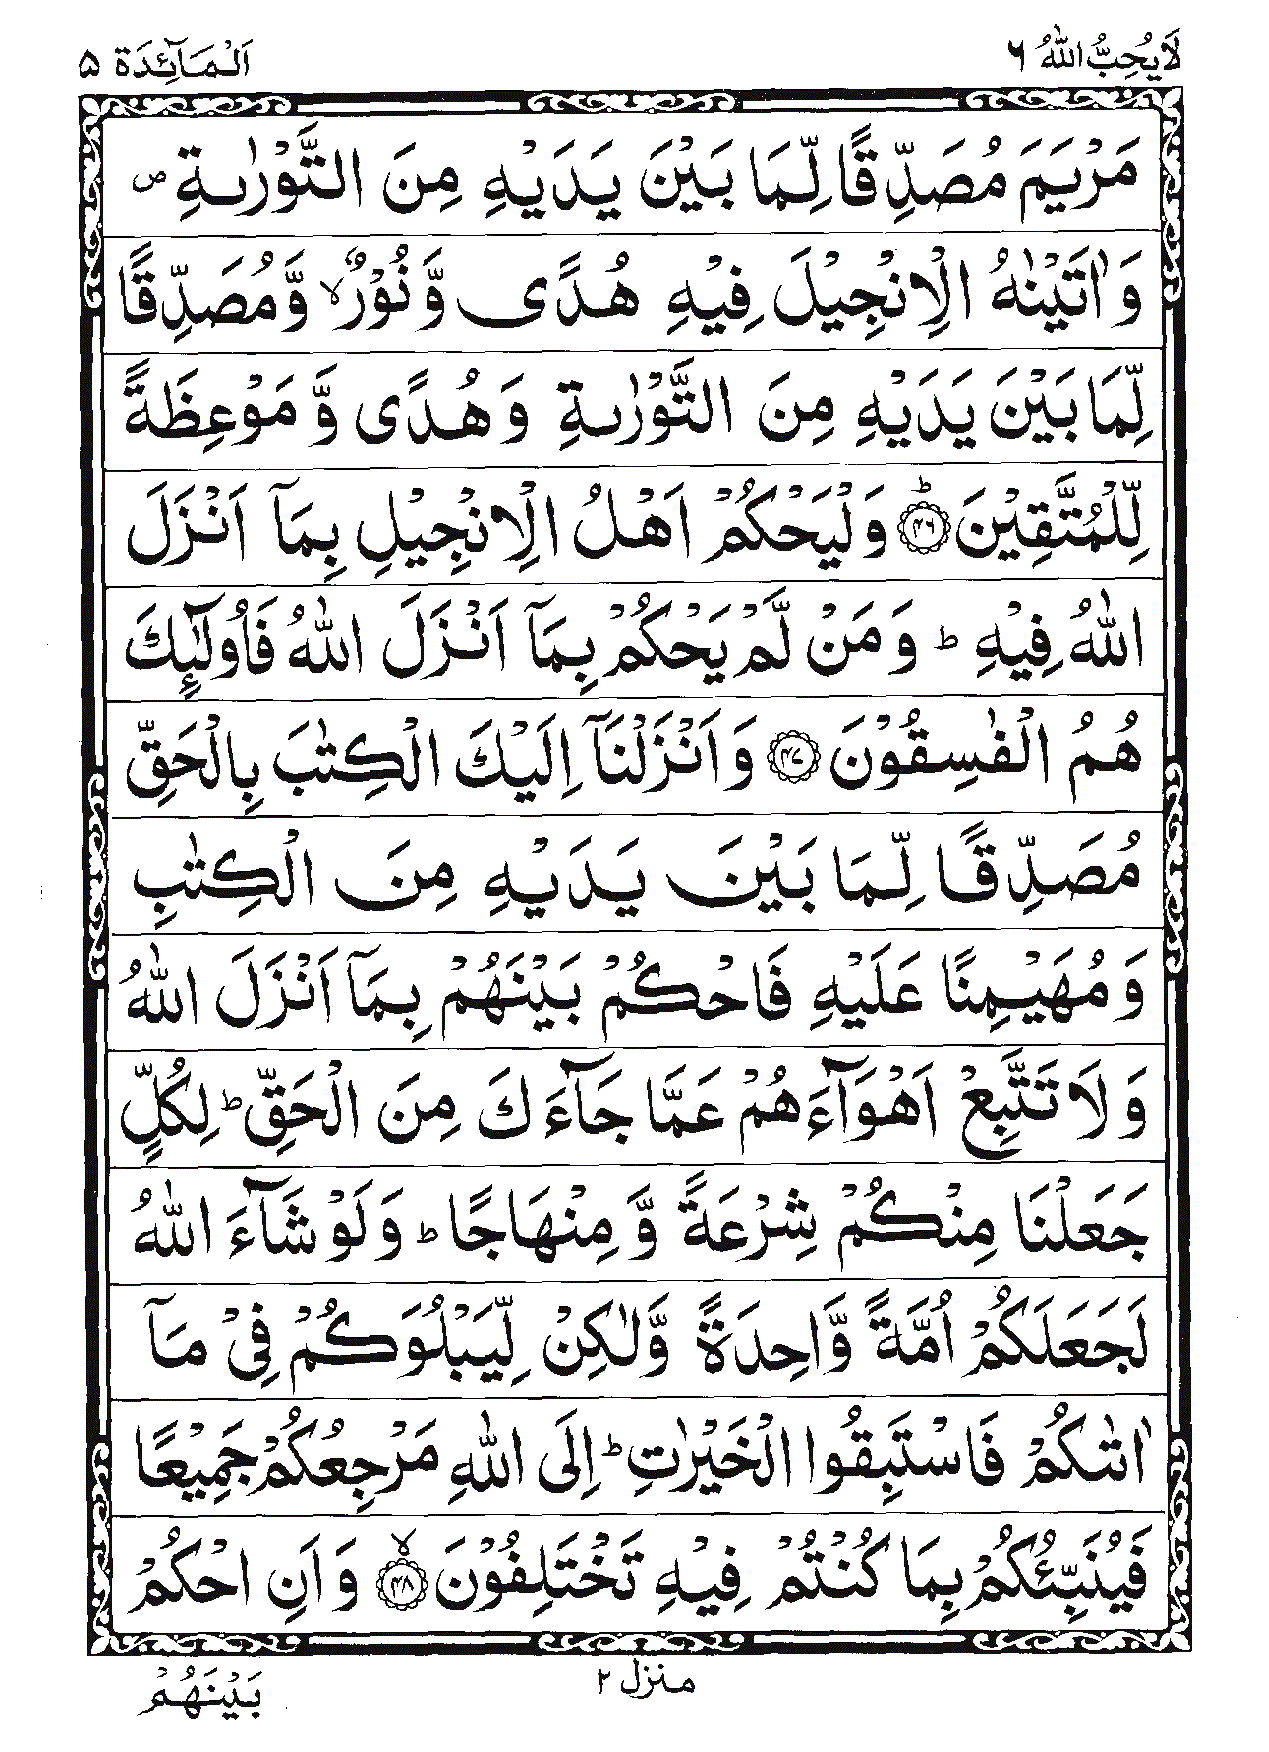 لَا يُحِبُّ اللّٰهُ ٦
اَلْمَآئِدَة ۵
مَرْيَمَ مُصَدِّقًا لِّمَا بَيْنَ يَدَيْهِ مِنَ التَّوْرٰىةِ ۪
وَاٰتَيْنٰهُ الْاِنْجِيْلَ فِيْهِ هُدًى وَّ نُوْرٌ ۙ وَّ مُصَدِّقًا
لِّمَا بَيْنَ يَدَيْهِ مِنَ التَّوْرٰىةِ وَ هُدًى وَّ مَوْعِظَةً
لِّلْمُتَّقِيْنَ ؕ﴿۴۶﴾ وَ لْيَحْكُمْ اَهْلُ الْاِنْجِيْلِ بِمَاۤ اَنْزَلَ
اللّٰهُ فِيْهِ ؕ وَ مَنْ لَّمْ يَحْكُمْ بِمَاۤ اَنْزَلَ اللّٰهُ فَاُولٰٓئِكَ
هُمُ الْفٰسِقُوْنَ ﴿۴۷﴾ وَ اَنْزَلْنَاۤ اِلَيْكَ الْكِتٰبَ بِالْحَقِّ
مُصَدِّقًا لِّمَا بَيْنَ يَدَيْهِ مِنَ الْكِتٰبِ
وَ مُهَيْمِنًا عَلَيْهِ فَاحْكُمْ بَيْنَهُمْ بِمَاۤ اَنْزَلَ اللّٰهُ
وَ لَا تَتَّبِعْ اَهْوَآءَهُمْ عَمَّا جَآءَكَ مِنَ الْحَقِّ ؕ لِكُلٍّ
جَعَلْنَا مِنْكُمْ شِرْعَةً وَّ مِنْهَاجًا ؕ وَ لَوْ شَآءَ اللّٰهُ
لَجَعَلَكُمْ اُمَّةً وَّاحِدَةً وَّلٰكِنْ لِّيَبْلُوَكُمْ فِيْ مَاۤ
اٰتٰىكُمْ فَاسْتَبِقُوا الْخَيْرٰتِ ؕ اِلَى اللّٰهِ مَرْجِعُكُمْ جَمِيْعًا
فَيُنَبِّئُكُمْ بِمَا كُنْتُمْ فِيْهِ تَخْتَلِفُوْنَ ۙ﴿۴۸﴾ وَ اَنِ احْكُمْ
منزل ٢
بَيْنَهُمْ